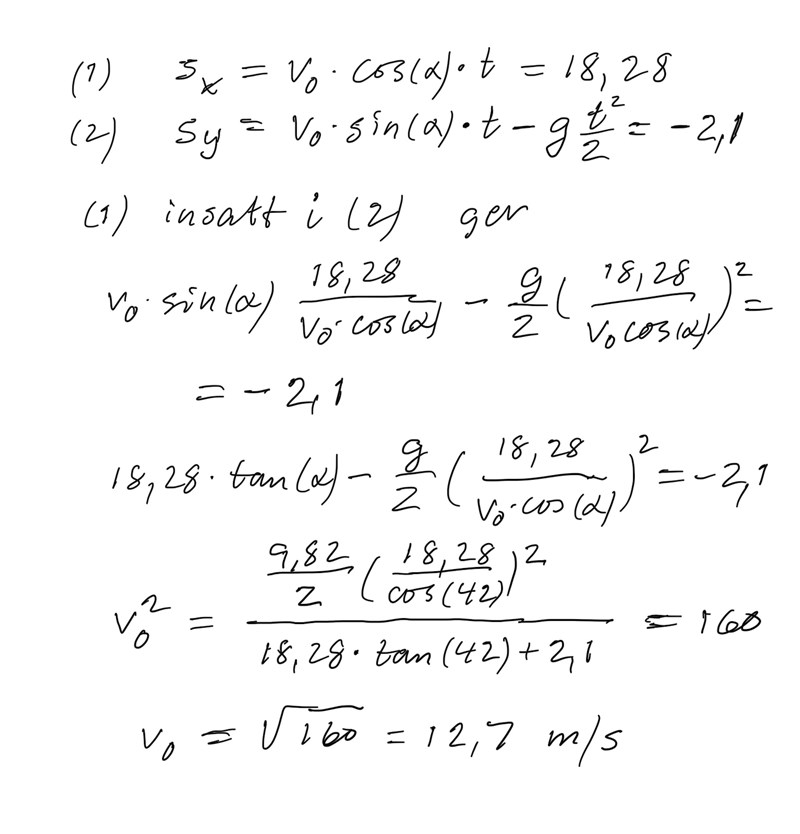 (1) s_x = v_0 · cos(α) · t = 18,28
(2) s_y = v_0 · sin(α) · t − g t²/2 = −2,1
(1) insatt i (2) ger
v_0 · sin(α) 18,28/(v_0 · cos(α)) − g/2 (18,28/(v_0 cos(α)))² =
= −2,1
18,28 · tan(α) − g/2 (18,28/(v_0 · cos(α)))² = −2,1
v_0² = (9,82/2 (18,28/cos(42))²)/(18,28 · tan(42) + 2,1) = 160
v_0 = √160 = 12,7 m/s